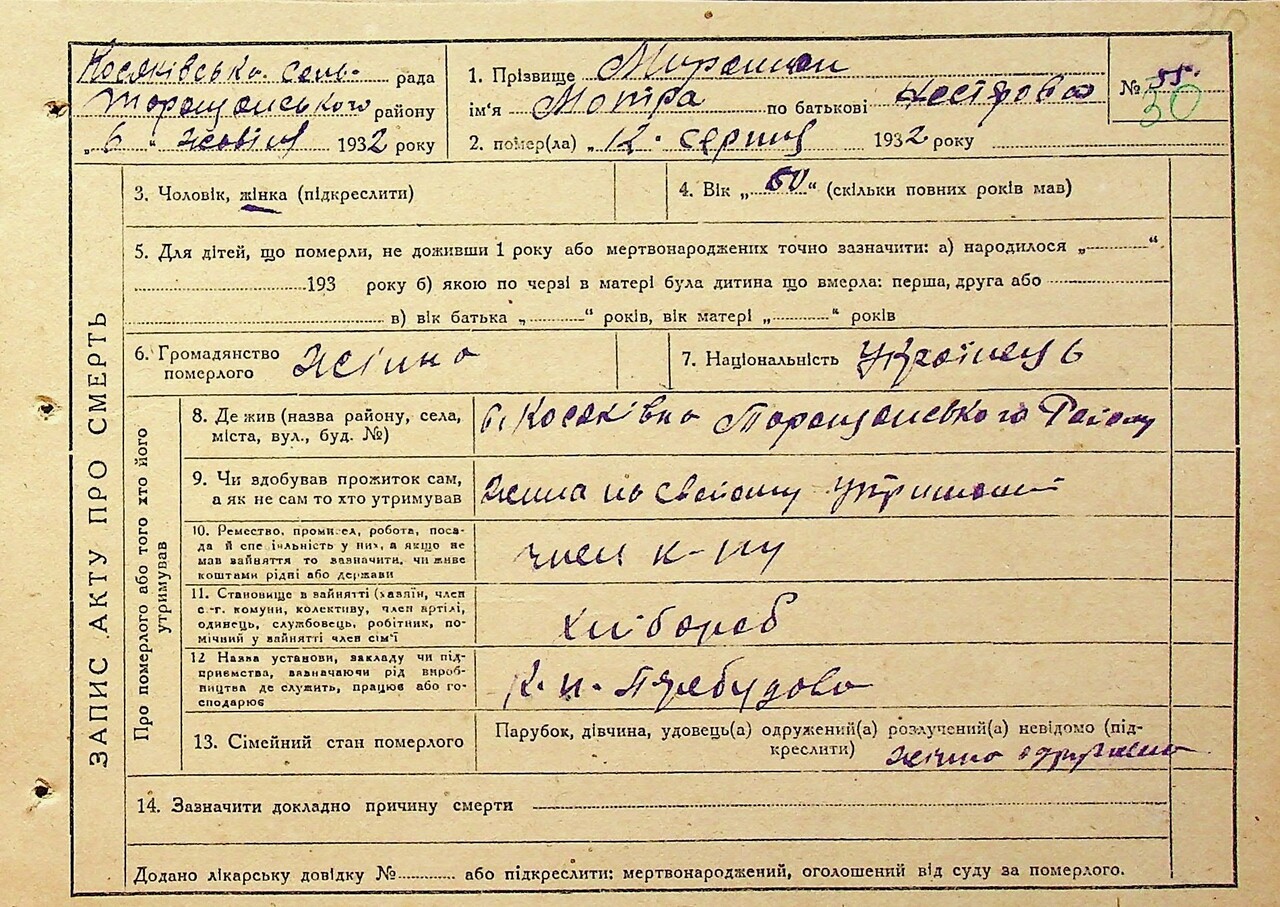 Косяківська сель- рада
Таращанського району
„ 6 “ жовтня 1932 року
1. Прізвище
ім'я Мотра по батькові Нестерова
2. помер(ла) „ 12 “ серпня 1932 року
№ 55.
30
ЗАПИС АКТУ ПРО СМЕРТЬ
3. Чоловік, жінка (підкреслити)
4. Вік „ 50 “ (скільки повних років мав)
5. Для дітей, що померли, не доживши 1 року або мертвонароджених точно зазначити: а) народилося „ “
193 року б) якою по черзі в матері була дитина що вмерла: перша, друга або
в) вік батька „ “ років, вік матері „ “ років
6. Громадянство
померлого
жінка
7. Національність Українець
Про померлого або того хто його
утримував
8. Де жив (назва району, села,
міста, вул., буд. №)
с. Косяківка Таращанського Району
9. Чи вдобував прожиток сам,
а як не сам то хто утримував
жила на своєму утриманні
10. Ремество, промисел, робота, поса-
да й спеціяльність у них, а якщо не
мав вайняття то зазначити, чи живе
коштами рідні або держави
член к-пу
11. Становище в вайнятті (хазяїн, член
с.-г. комуни, колективу, член артілі,
одинець, службовець, робітник, по-
мічний у вайнятті член сім'ї
хлібороб
12 Назва установи, закладу чи під-
приємства, вазначаючи рід вироб-
ництва де служить, працює або го-
сподарює
К. п. Перебудова
13. Сімейний стан померлого
Парубок, дівчина, удовець(а) одружений(а) розлучений(а) невідомо (під-
креслити) жінка одружена
14. Зазначити докладно причину смерти
Додано лікарську довідку № або підкреслити: мертвонароджений, оголошений від суду за померлого.